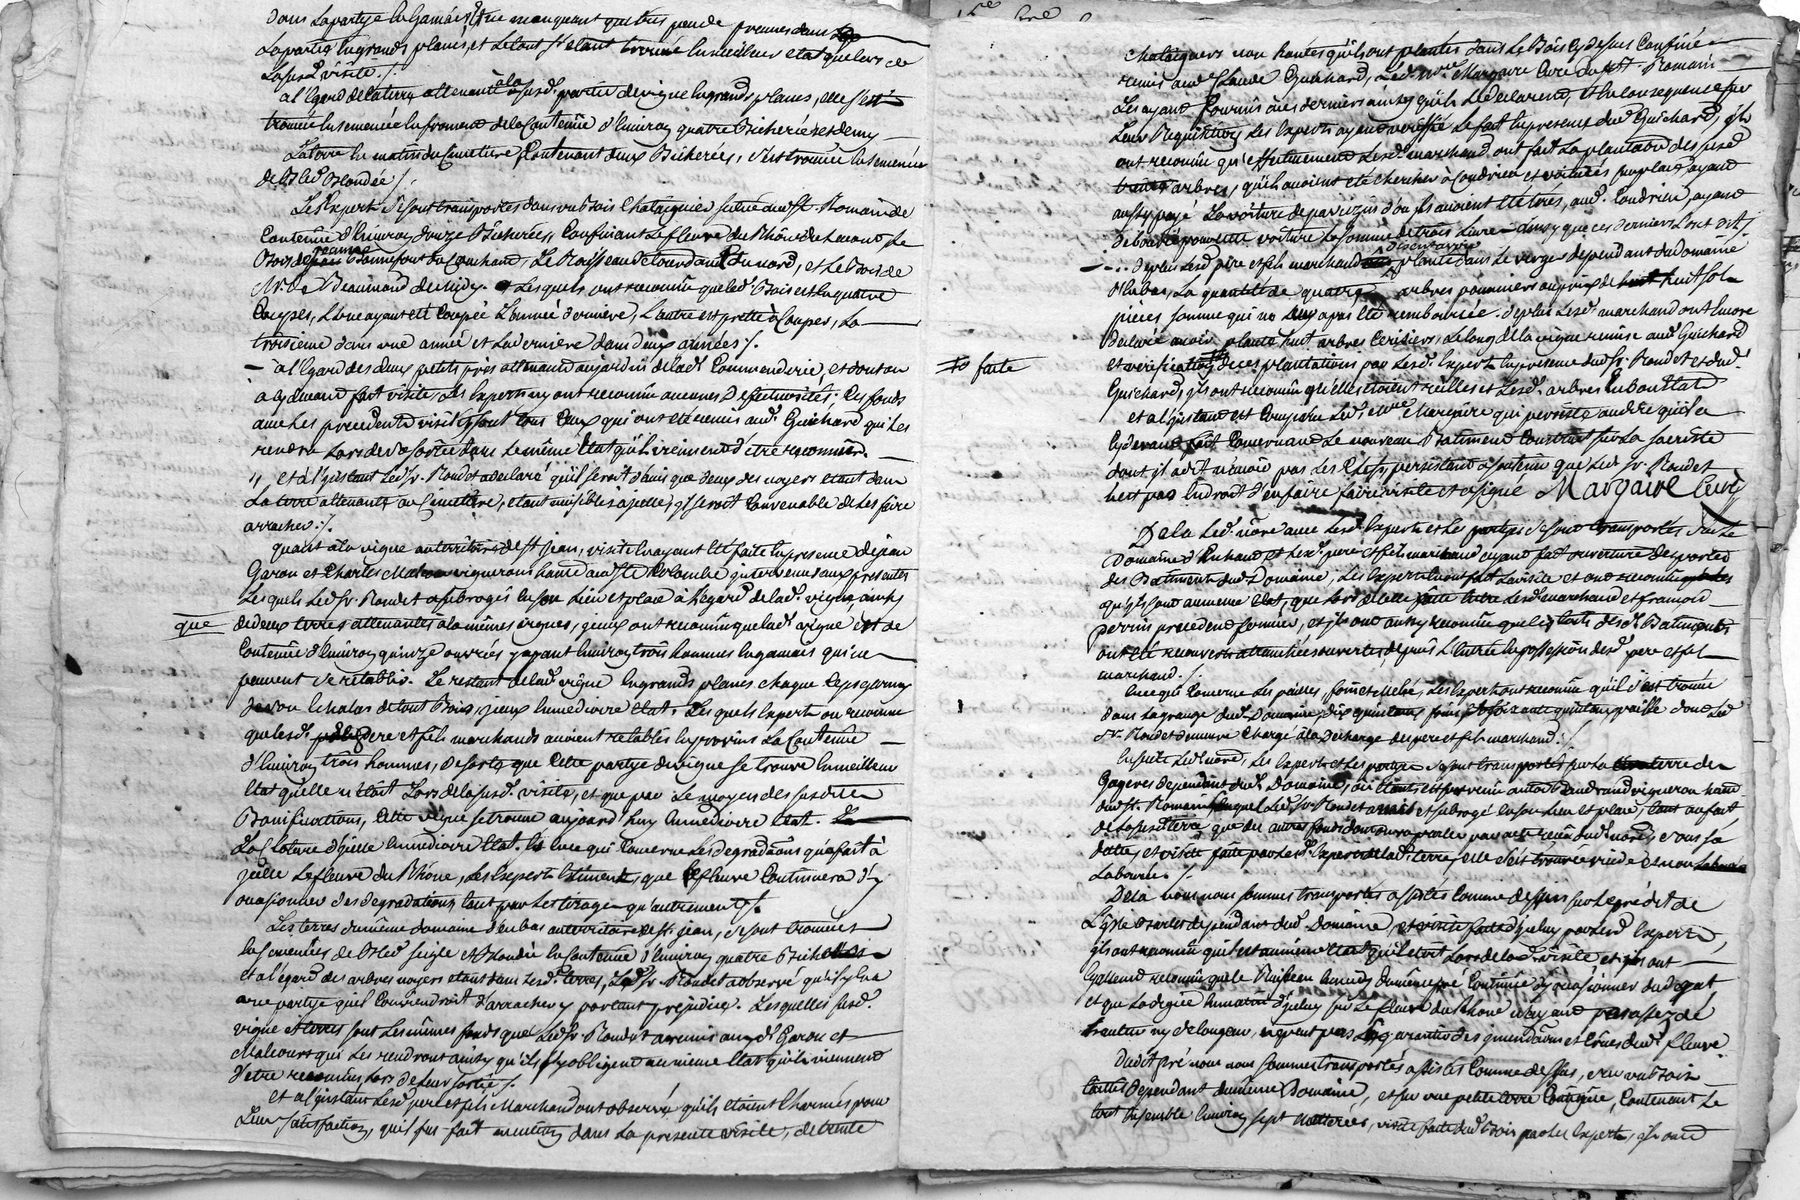 dans la partye en Gamais, et ne manquant que très peu de provins dans
la partie en grands planés, et le tout s'étant trouvé en meilleur etat que lors de
la susd. visite ./.
à l'égard de la terre attenante à la susd. partie de vigne en grands planes, elle s'est
trouvée ensemencée en froment de la Contenue d'environ quatre Bicherées et demy
La terre en matin du Cimetiere Contenant deux Bicherées, s'est trouvée ensemencée
de Bled Blondée ./.
Les Experts se sont transportés dans un bois Chataignier situé aud. St. Romain de
Contenue d'environ douze Bicherées, Confinant le fleuve du Rhône de
Bois de Jeanne Bonnefont du Couchand, le Ruisseau de tourdant du nord, et le Bois de
Mr. de Beaumand du midy. Lesquels ont reconnu que led. Bois est en quatre
Coupes, L'une ayant été Coupée L'année derniere, L'autre est prette à Couper, La
troisieme dans une année et La derniere dans deux années ./.
à l'égard des deux petits prés attenants au jardin de lad. Commanderie, et dont on
a cy devant fait visite, les Experts n'y ont reconnu aucunes deffectuosités; Ces fonds
avec les precedents visités sont tous Ceux qui ont été remis aud. Guichard qui les
rendra Lors de sa sortie dans le même Etat qu'ils viennent d'être reconnus.
et à l'instant Led. Sr. Rondet a declaré qu'il seroit d'avis que deux des noyers etant dans
La terre attenante au Cimetiere, etant nuisibles à icelle, il seroit Convenable de les faire
arracher ./.
quant à la vigne au territoire de St. Jean, visite en ayant été faite en presence de Jean
Garon et Charles Malcour vignerons hants. à Ste. Colombe intervenus aux presentes
Lesquels Led. Sr. Rondet a subrogés en son Lieu et place à l'egard de lad. vigne, ainsy
que
de deux terres attenantes à la même vigne, iceux ont reconnu que lad. vigne est de
Contenue d'environ quinze ouvrées y ayant environ trois hommes en gamais qui ne
peuvent se retablir. Le restant de lad. vigne en grands planes chaque ceps garny
de son Echalas de tout Bois, iceux en mediocre Etat. Lesquels Experts ont reconnu
que lesd. pere et fils marchands avoient retablis en provins La Contenue
d'environ trois hommes, de sorte que Cette partye de vigne se trouve en meilleur
Etat qu'elle n'étoit Lors de la susd. visite, et que par Le moyen des susdittes
Bonifications, Cette vigne se trouve aujourd'huy en mediocre Etat.
La Cloture d'icelle en mediocre Etat. En Ce qui Concerne Les degradaons. qu'a fait à
icelle Le fleuve du Rhône, Les Experts Estiment, que Le fleuve Continuera d'y
occasionner des degradations, tant par Les tirages qu'autrement ./.
Les terres du même domaine d'enbas au territoire de St. jean, se sont trouvées
ensemencées de Bled seigle et Blondée en Contenue d'environ quatre Bicherées
et à l'égard des arbres noyers etant dans Lesd. terres, Led. Sr. Rondet a observé qu'il y en a
une partye qu'il Conviendroit d'arracher y portant prejudice. Lesquelles susd.
vigne et terres sont Les mêmes fonds que Led. Sr. Rondet a remis auxd. Garon et
Malcour qui Les rendront ainsy qu'ils s'y obligent au même Etat qu'ils viennent
d'être reconnus Lors de Leur sortie ./.
et à l'instant Lesd. pere et fils Marchand ont observé qu'ils étoient Charmés pour
Leur satisfaction, qu'il fut fait mention dans La presente visite, de trente
Chataigners non hantés qu'ils ont plantés dans Le Bois Cy dessus Confiné
remis aud. Claude Guichard, Led. Mre. Margaire Curé dud. St. Romain
Les ayant fournis à ces derniers ainsy qu'ils Le declarent, Et en Consequence sur
Leur Requisition Les Experts ayant verifié Le fait en presence dud. Guichard, ils
ont reconnu qu'effectivement Lesd. marchand ont fait La plantation des susd.
trente arbres, qu'ils avoient eté chercher à Condrieu et voiturés sur place, ayant
aussy payé La voiture depuis d'où ils avoient été tirés, aud. Condrieu, ayant
deboursé pour cette voiture La somme de trois Livres ainsy que ces derniers L'ont dit ./.
De plus Lesd. pere et fils marchand ont planté dans Le verger dependant du domaine
d'Enbas, La quantité de quatre arbres pommiers au prix de huit sols
pieces somme qui ne Leur a pas été remboursée. de plus Lesd. marchand ont Encore
declaré avoir planté huit arbres Cerisiers, Le long de la vigne remise aud. Guichard
# faite
et verification # de ces plantations par Lesd. Experts en presence dud. Sr. Rondet et dud.
Guichard, ils ont reconnu qu'elles etoient reelles et Lesd. arbres En bon Etat
et à l'instant est Comparu Led. Mre. Margaire qui persiste au dire qu'il a
Cy devant fait Concernant Le nouveau Batiment Construit sur La sacristie
dont il a dit n'avoir pas Les Clefs, persistant à soutenir que Led. Sr. Rondet
n'est pas En droit d'en faire faire visite et a signé Margaire Curé
De La Led. nore. avec Lesd. Experts et Les partyes se sont transportés dans Le
Domaine d'Enhaut et Lesd. pere et fils marchand ayant fait ouverture des portes
des Batiments dud. Domaine, Les Experts en ont fait La visite et ont reconnu
qu'ils sont au meme Etat, que Lors de celle faitte Entre Lesd. marchand et françois
perrin precedent fermier, et ils ont aussy reconnu que Les toits desd. Batiments
ont été recouverts depuis L'entrée en possession desd. pere et fils
marchand ./.
En ce qui Concerne Les pailles, foins et , Les Experts ont reconnu qu'il s'est trouvé
dans La grange dud. Domaine, dix quintaux foin et soixante quintaux paille dont Led.
Sr. Rondet demeure Chargé à la decharge des pere et fils marchand ./.
En suite Led. nore., Les Experts et Les partyes se sont transportés sur La terre des
Gageres dependant dud. Domaine, où Etant, est survenu antoine vigneron hant.
aud. St. Romain Lequel Led. Sr. Rondet a mis et subrogé en son Lieu et place, tant au fait
de La susd. terre que des autres fonds dont sera parlé par acte reçu dud. nore., sous sa
datte, et visite faite par Lesd. Experts de lad. terre, elle s'est trouvée vuide et non
Labourée. ./.
De La nous nous sommes transportés assistés Comme dessus sur Le pré dit de
L'isle Barlet dependant dud. Domaine, et visite faite d'iceluy par Lesd. Experts,
ils ont reconnu qu'il est au même Etat qu'il etoit Lors de La d. visite et ils ont
Egalement reconnu que Le Ruisseau En midy du même pré Continue d'y occasionner du degat
et que La digue En matin d'iceluy sur Le fleuve du Rhône n'ayant pas assez de
hauteur ny de longueur, ne peut pas Les garantir des inondations et Crues dud. fleuve.
Dudit pré nous nous sommes transportés assistés Comme dessus, en un bois
taillis dependant du même Domaine, et sur une petite terre Contigue, Contenant Le
tout Ensemble Environ sept metterées, visite faite dud. Bois par Les Experts, ils ont